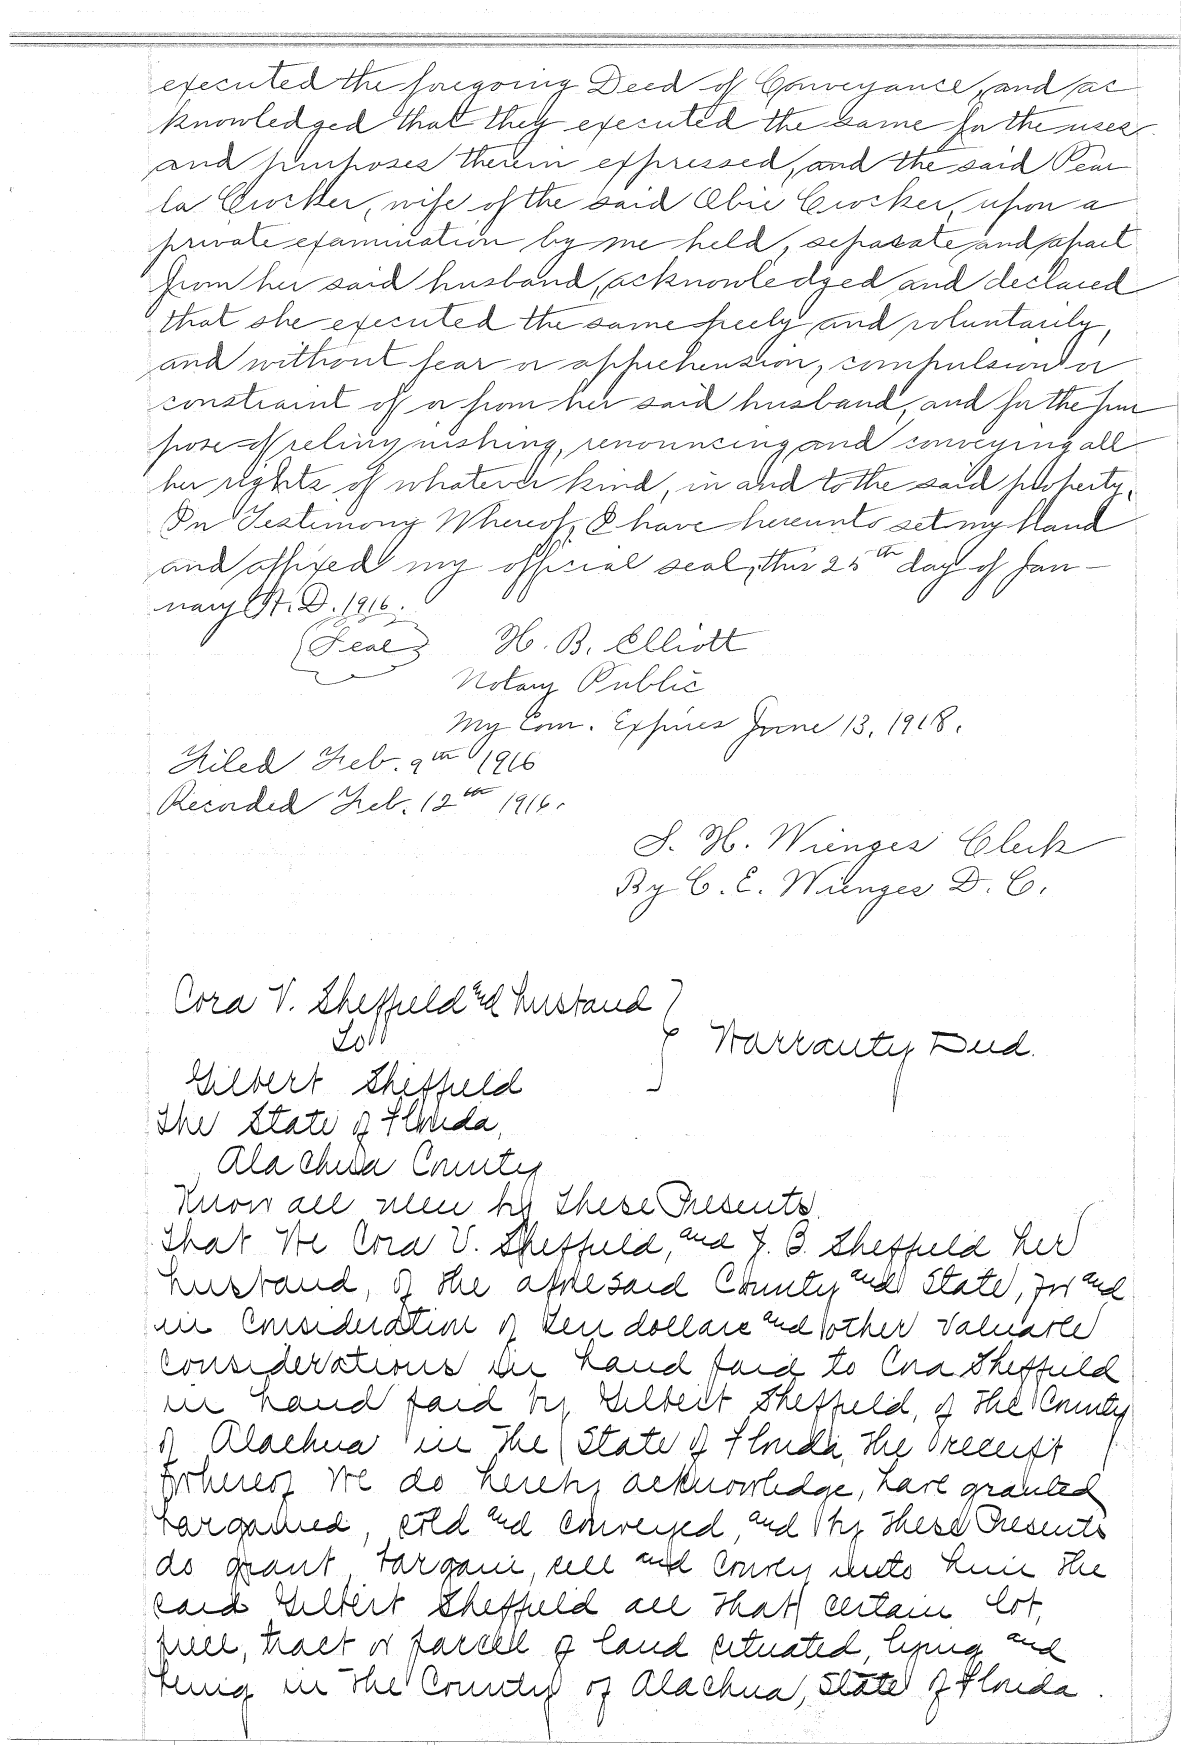 executed the foregoing Deed of Conveyance, and ac
knowledged that they executed the same for the uses
and purposes therein expressed, and the said Pear
la Crocker, wife of the said Obie Crocker, upon a
private examination by me held, separate and apart
from her said husband, acknowledged and declared
that she executed the same freely and voluntarily,
and without fear or apprehension, compulsion or
constraint of or from her said husband, and for the pur
pose of relinquishing, renouncing and conveying all
her rights of whatever kind, in and to the said property.
In Testimony Whereof, I have hereunto set my hand
and affixed my official seal, this 25th day of Jan-
uary A. D. 1916.
(Seal) H. B. Elliott
Notary Public
My Com. Expires June 13, 1918.
Filed Feb. 9th 1916
Recorded Feb. 12th 1916.
S. H. Wienges Clerk
By C. E. Wienges D. C.
Cora V. Sheffield and husband
To
Warranty Deed.
Gilbert Sheffield
The State of Florida,
Alachua County
Know all men by these Presents
That We Cora V. Sheffield, and J. B. Sheffield her
husband, of the aforesaid County and State, for and
in consideration of Ten dollars and other valuable
considerations in hand paid to Cora Sheffield
in hand paid by Gilbert Sheffield, of the County
of Alachua in the State of Florida, the receipt
whereof we do hereby acknowledge, have granted
bargained, sold and conveyed, and by these Presents
do grant, bargain, sell and convey unto him the
said Gilbert Sheffield all that certain lot,
piece, tract or parcell of land situated, lying and
being in the County of Alachua, State of Florida.